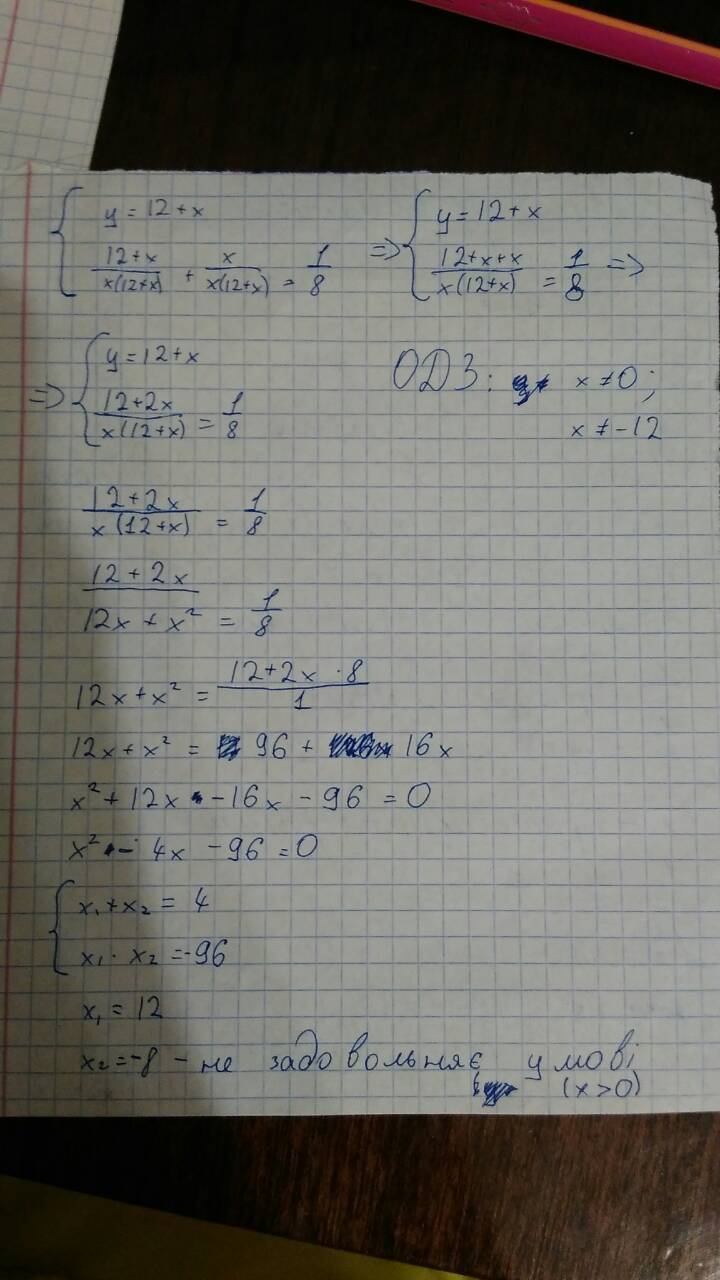 { y = 12 + x => { y = 12 + x
(12+x)/(x(12+x)) + x/(x(12+x)) = 1/8 (12+x+x)/(x(12+x)) = 1/8 =>
=> { y = 12 + x ОДЗ: x ≠ 0;
(12+2x)/(x(12+x)) = 1/8 x ≠ -12
(12+2x)/(x(12+x)) = 1/8
(12+2x)/(12x + x²) = 1/8
12x + x² = (12+2x · 8)/1
12x + x² = 96 + 16x
x² + 12x - 16x - 96 = 0
x² - 4x - 96 = 0
{ x₁ + x₂ = 4
x₁ · x₂ = -96
x₁ = 12
x₂ = -8 - не задовольняє умові
(x > 0)